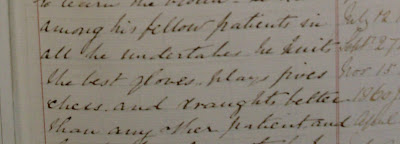 to learn the
among his fellow patients in
all he undertakes he knits
the best gloves, plays fives
chess, and draughts better
than any other patient and
July 12
Sept 27
Nov 15
1860
April